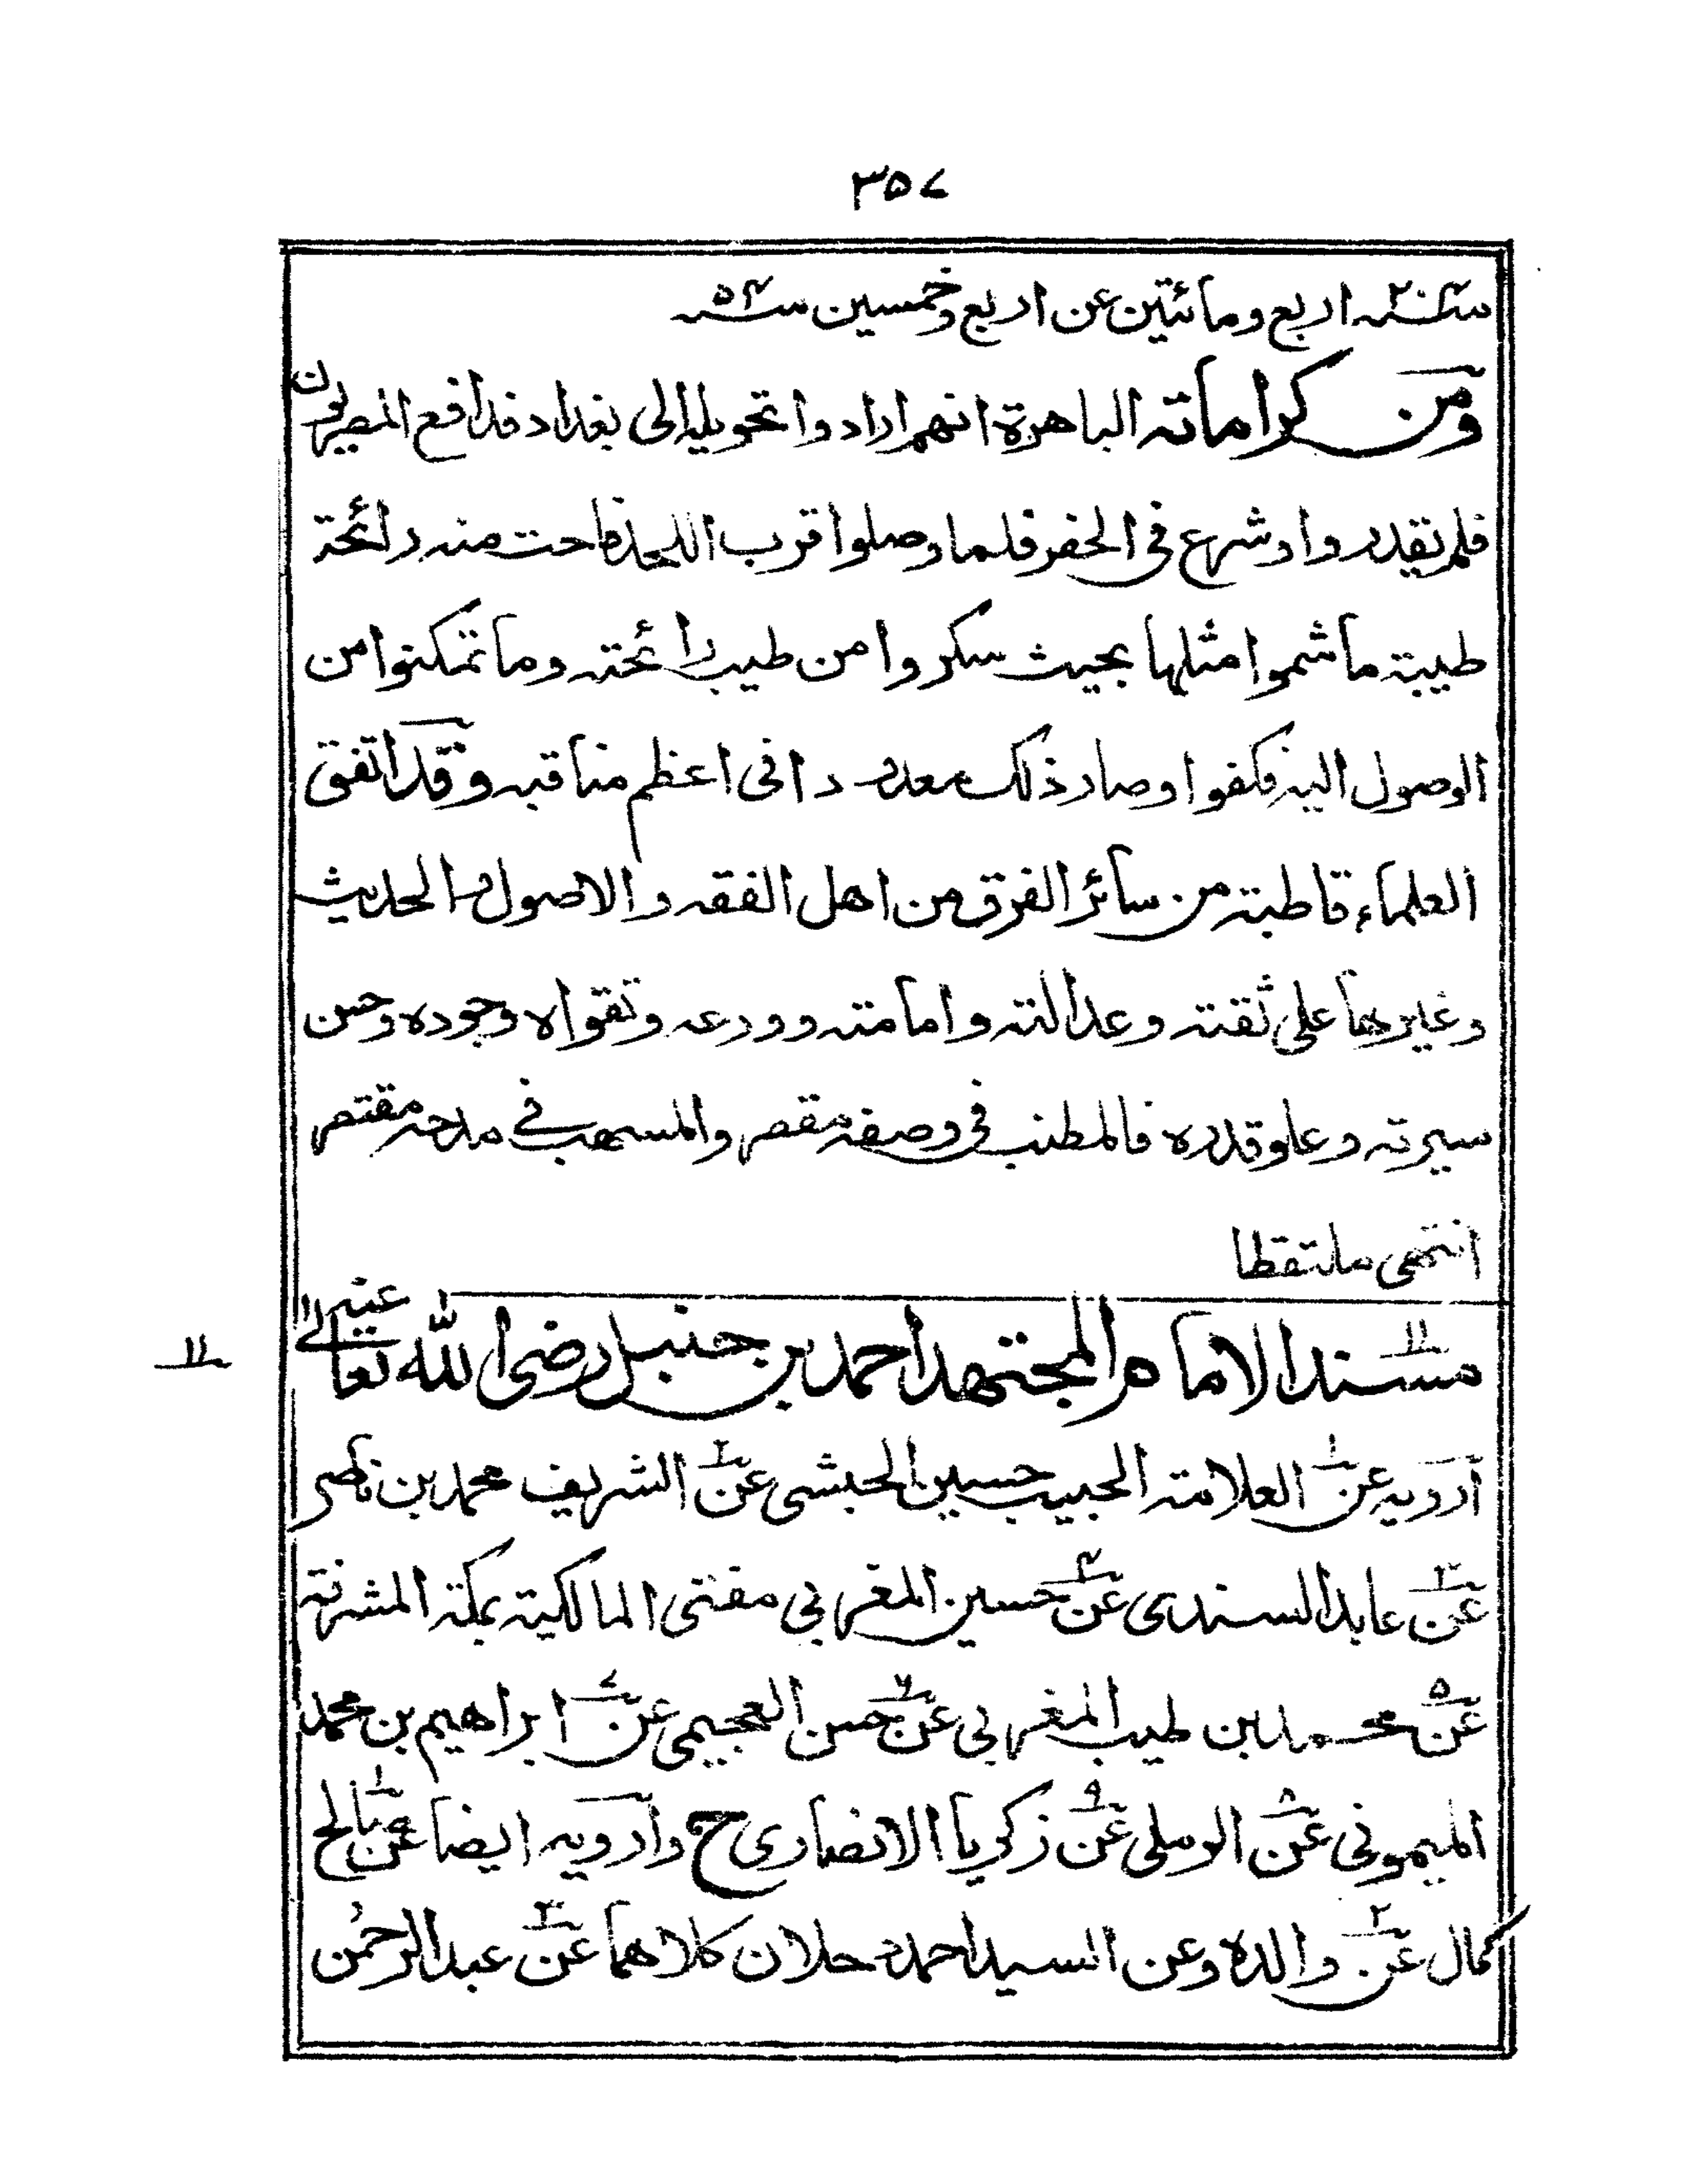 ٣٥٧
سنة ٢٠٤ اربع ومائتين عن اربع وخمسين سنة ٥٤
ومن كراماته الباهرة انهم ارادوا تحويله الى بغداد فدافع المصريون
فلم يقدروا وشرع فى الحفر فلما وصلوا قرب اللحد فاحت منه رائحة
طيبة ما شموا مثلها بحيث سكروا من طيب رائحته وما تمكنوا من
الوصول اليه فكفوا وصار ذلك معدودا فى اعظم مناقبه وقد اتفق
العلماء قاطبة من سائر الفرق من اهل الفقه والاصول والحديث
وغيرها على ثقته وعدالته وامامته وورعه وتقواه وجوده وحسن
سيرته وعلو قدره فالمطنب فى وصفه مقصر والمسهب فے مدحه مقتصر
انتهى ملتقطا
١١ مسند الامام المجتهد احمد بن حنبل رضى الله تعالى عنه
١١
أرويه عن ١ العلامة الحبيب حسين الحبشى عن ٢ الشريف محمد بن ناصر
عن ٣ عابد السندى عن ٤ حسين المغربي مفتى المالكية بمكة المشرفة
عن ٥ محمد بن طيب المغربي عن ٦ حسن العجيمى عن ٧ ابراهيم بن محمد
الميمونى عن ٨ الرملى عن ٩ زكريا الانصارى ح وأرويه ايضا عن ١ صالح
كمال عن ٢ والده وعن السيد احمد دحلان كلاهما عن ٣ عبد الرحمن